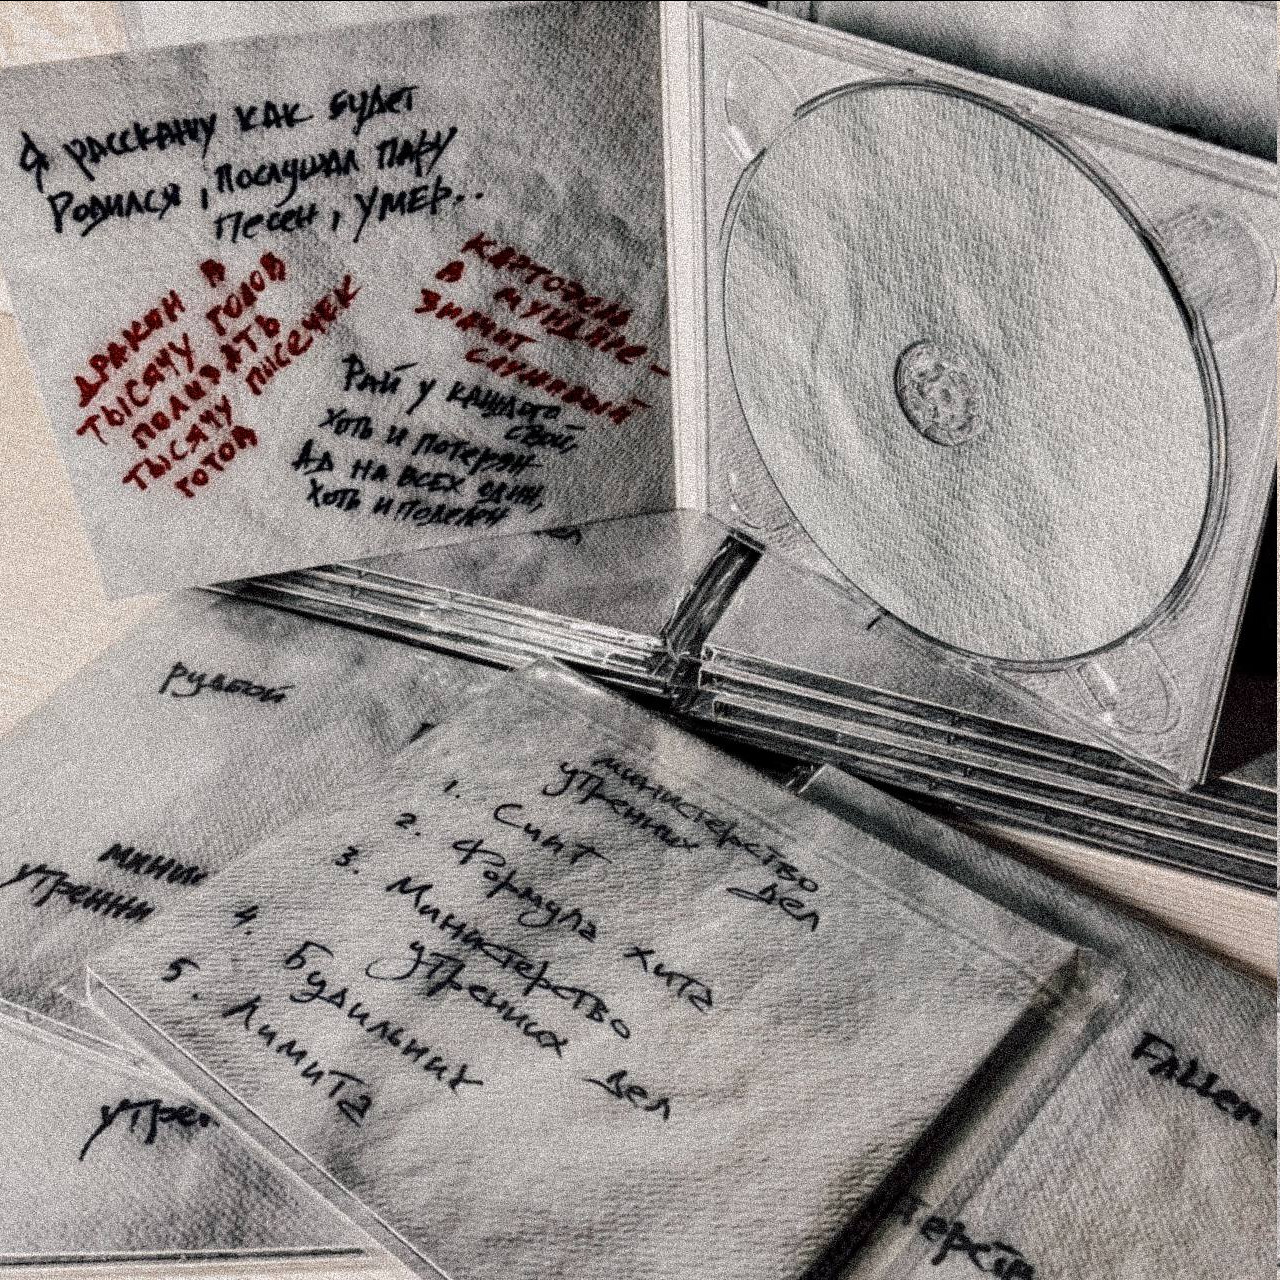 Я расскажу как будет
Родился, послушал пару
песен, умер..
ДРАКОН В
ТЫСЯЧУ ГОЛОВ
ПОЛИЗАТЬ
ТЫСЯЧУ ПИСЕЧЕК
ГОТОВ
КАРТОФЕЛЬ
В МУНДИРЕ -
ЗНАЧИТ
СЛУЖИВЫЙ
Рай у каждого
свой,
Хоть и потерян
Ад на всех один,
Хоть и поделён
министерство
утренних дел
1. Синт
2. Формула хита
3. Министерство
утренних дел
4. Будильник
5. Лимита
утренни
Fallen